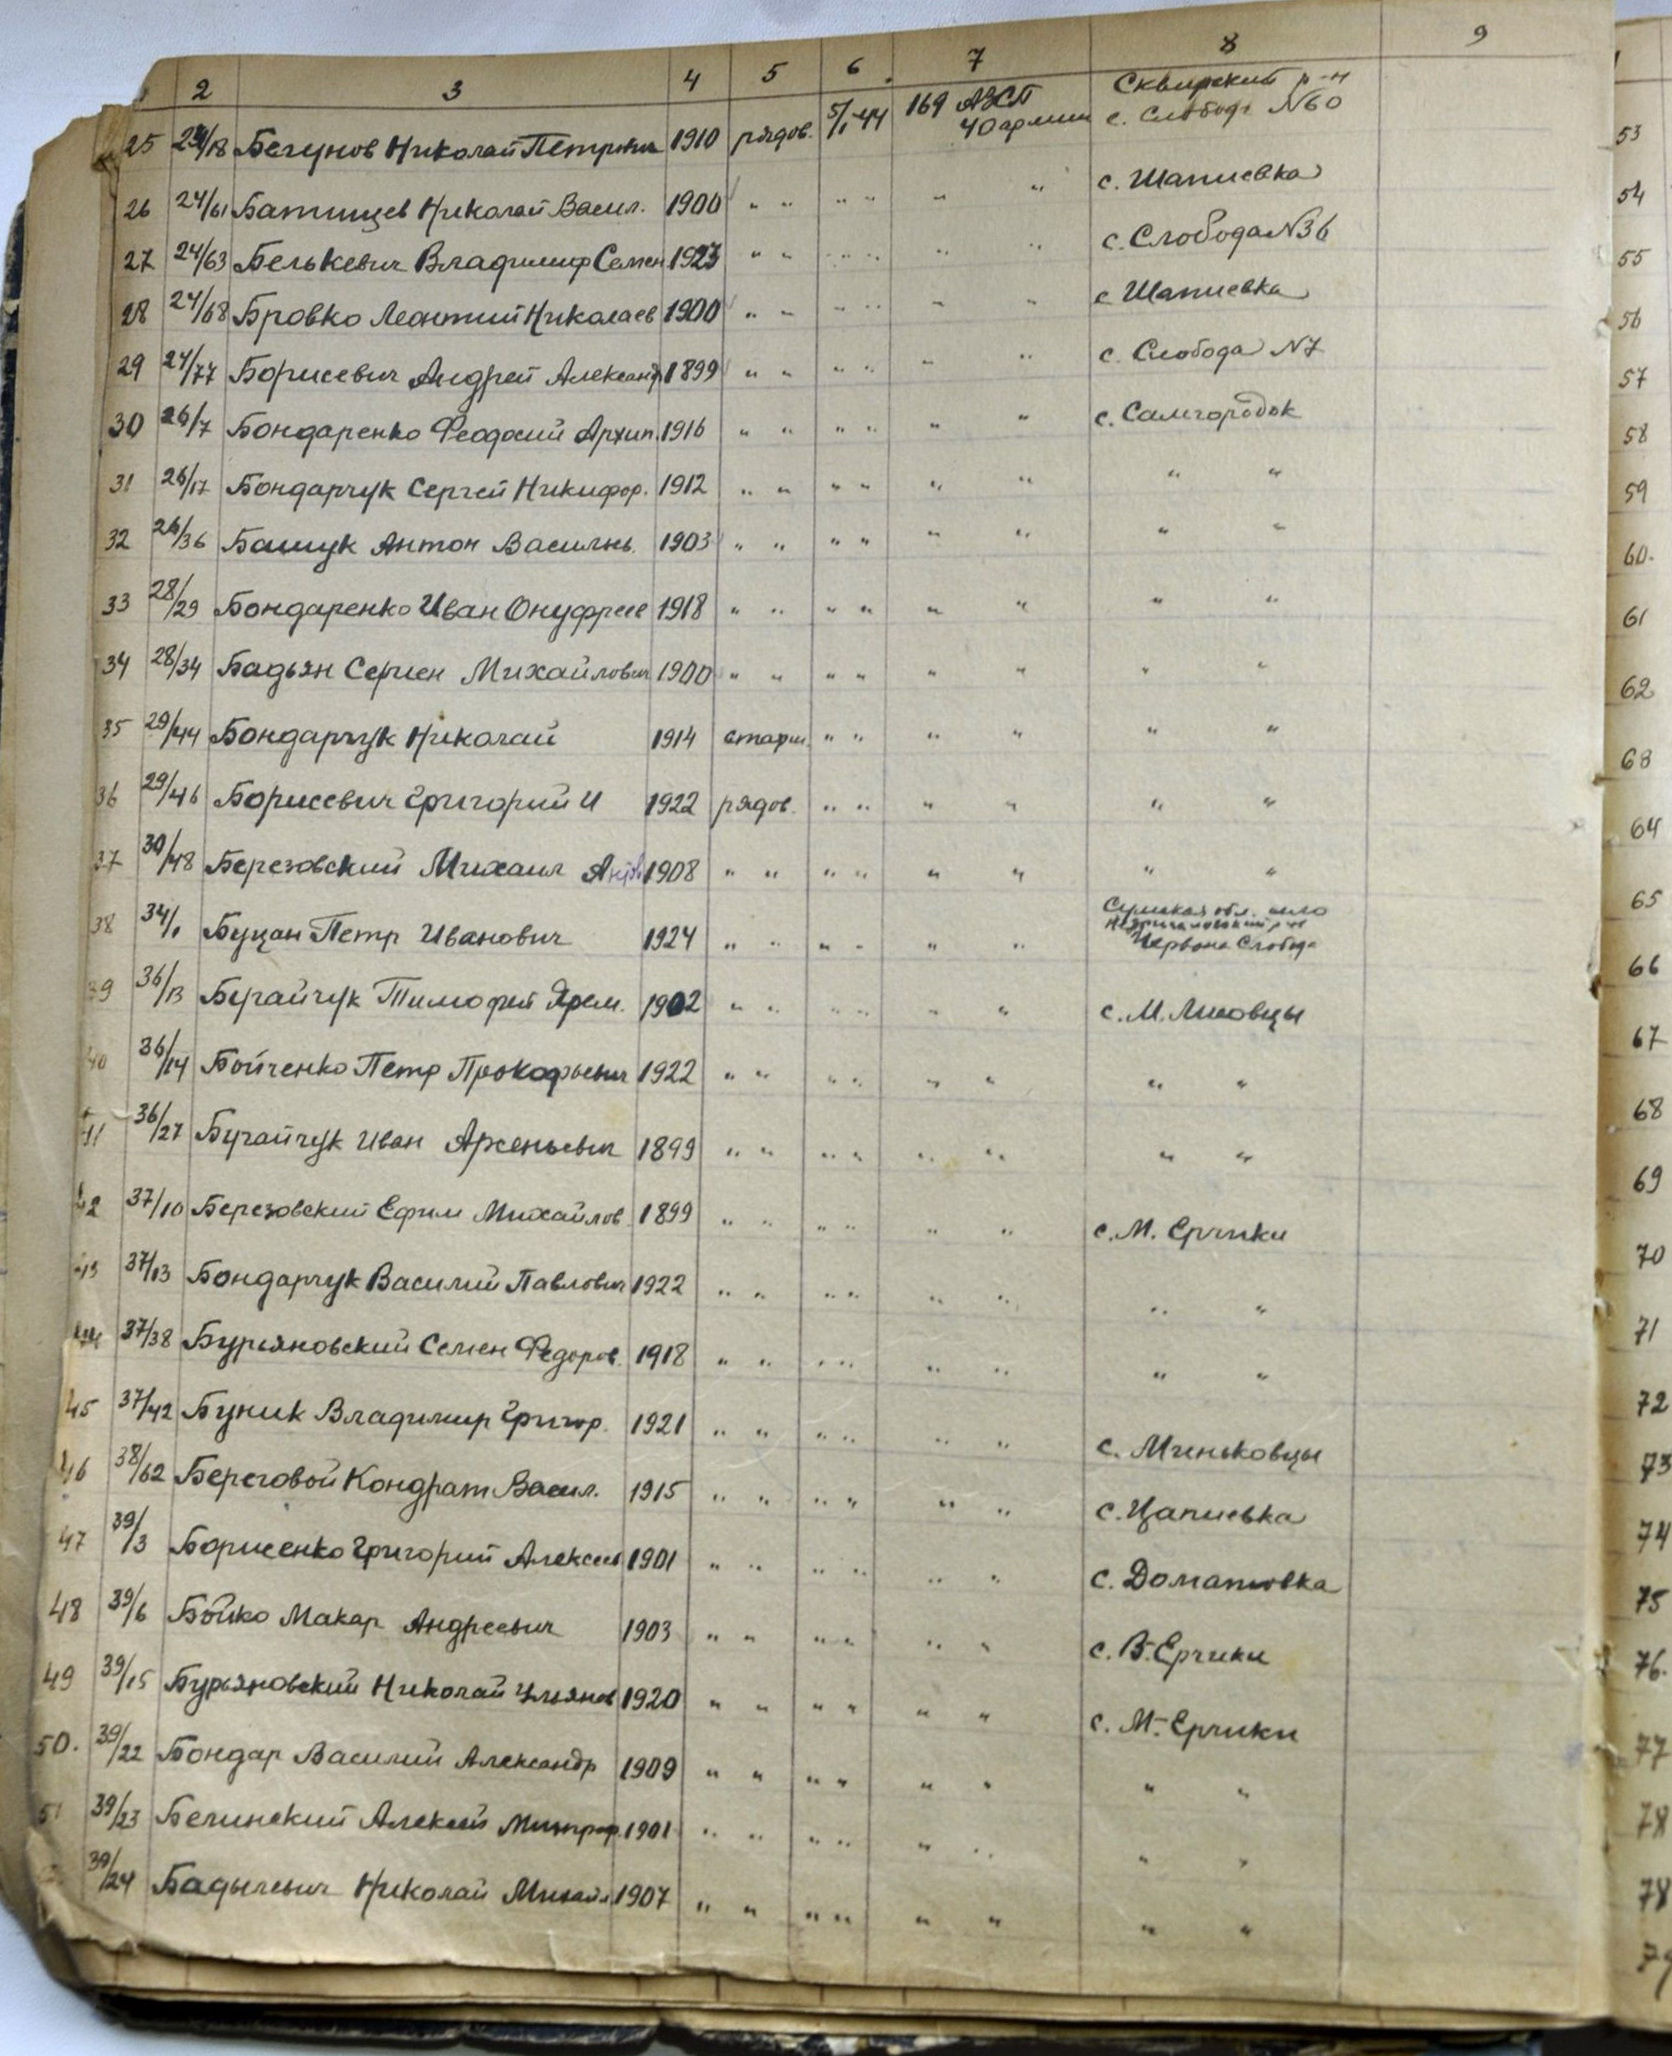 2 3 4 5 6 7 8 9
Сквирский р-н
25 24/18 Бегунов Николай Петрович 1910 рядов. 5/I-44 169 АЗСП 40 армии с. Слобода N60
26 24/61 Батищев Николай Васил. 1900 " " " " " " с. Шапиевка
27 24/63 Белькевич Владимир Семен 1923 " " " " " " с. Слобода N36
28 24/68 Бровко Леонтий Николаев 1900 " " " " " " с Шапиевка
29 24/77 Борисевич Андрей Александ 1899 " " " " " " с. Слобода N7
30 26/7 Бондаренко Феодосий Архип. 1916 " " " " " " с. Самгородок
31 26/17 Бондарчук Сергей Никифор. 1912 " " " " " " " "
32 26/36 Башук Антон Васильев. 1903 " " " " " " " "
33 28/29 Бондаренко Иван Онуфрие 1918 " " " " " " " "
34 28/34 Бадьян Семен Михайлович 1900 " " " " " " " "
35 29/44 Бондарчук Николай 1914 старш. " " " " " "
36 29/46 Борисевич Григорий И 1922 рядов. " " " " " "
37 30/48 Березовский Михаил 1908 " " " " " " " "
Сумская обл. село
38 34/1 Буцан Петр Иванович 1924 " " " " " " Червона Слобода
39 36/13 Бугайчук Тимофей Ярем. 1902 " " " " " " с. М. Лисовцы
40 36/14 Бойченко Петр Прокофьевич 1922 " " " " " " " "
41 36/27 Бугайчук Иван Арсеньевич 1899 " " " " " " " "
42 37/10 Березовский Ефим Михайлов. 1899 " " " " " " с. М. Ерчики
43 37/13 Бондарчук Василий Павлович 1922 " " " " " " " "
44 37/38 Бурьяновский Семен Федоров. 1918 " " " " " " " "
45 37/42 Буник Владимир Григор. 1921 " " " " " " с. Миньковцы
46 38/62 Береговой Кондрат Васил. 1915 " " " " " " с. Цапиевка
47 39/3 Борисенко Григорий Алексеев 1901 " " " " " " с. Домантовка
48 39/6 Бойко Макар Андреевич 1903 " " " " " " с. В. Ерчики
49 39/15 Бурьяновский Николай Ульянов 1920 " " " " " " с. М. Ерчики
50. 39/22 Бондар Василий Александр 1909 " " " " " " " "
51 39/23 Белинский Алексей Митроф. 1901 " " " " " " " "
39/24 Бадылевич Николай Михайл 1907 " " " " " " " "
53
54
55
56
57
58
59
60.
61
62
63
64
65
66
67
68
69
70
71
72
73
74
75
76.
77
78
78